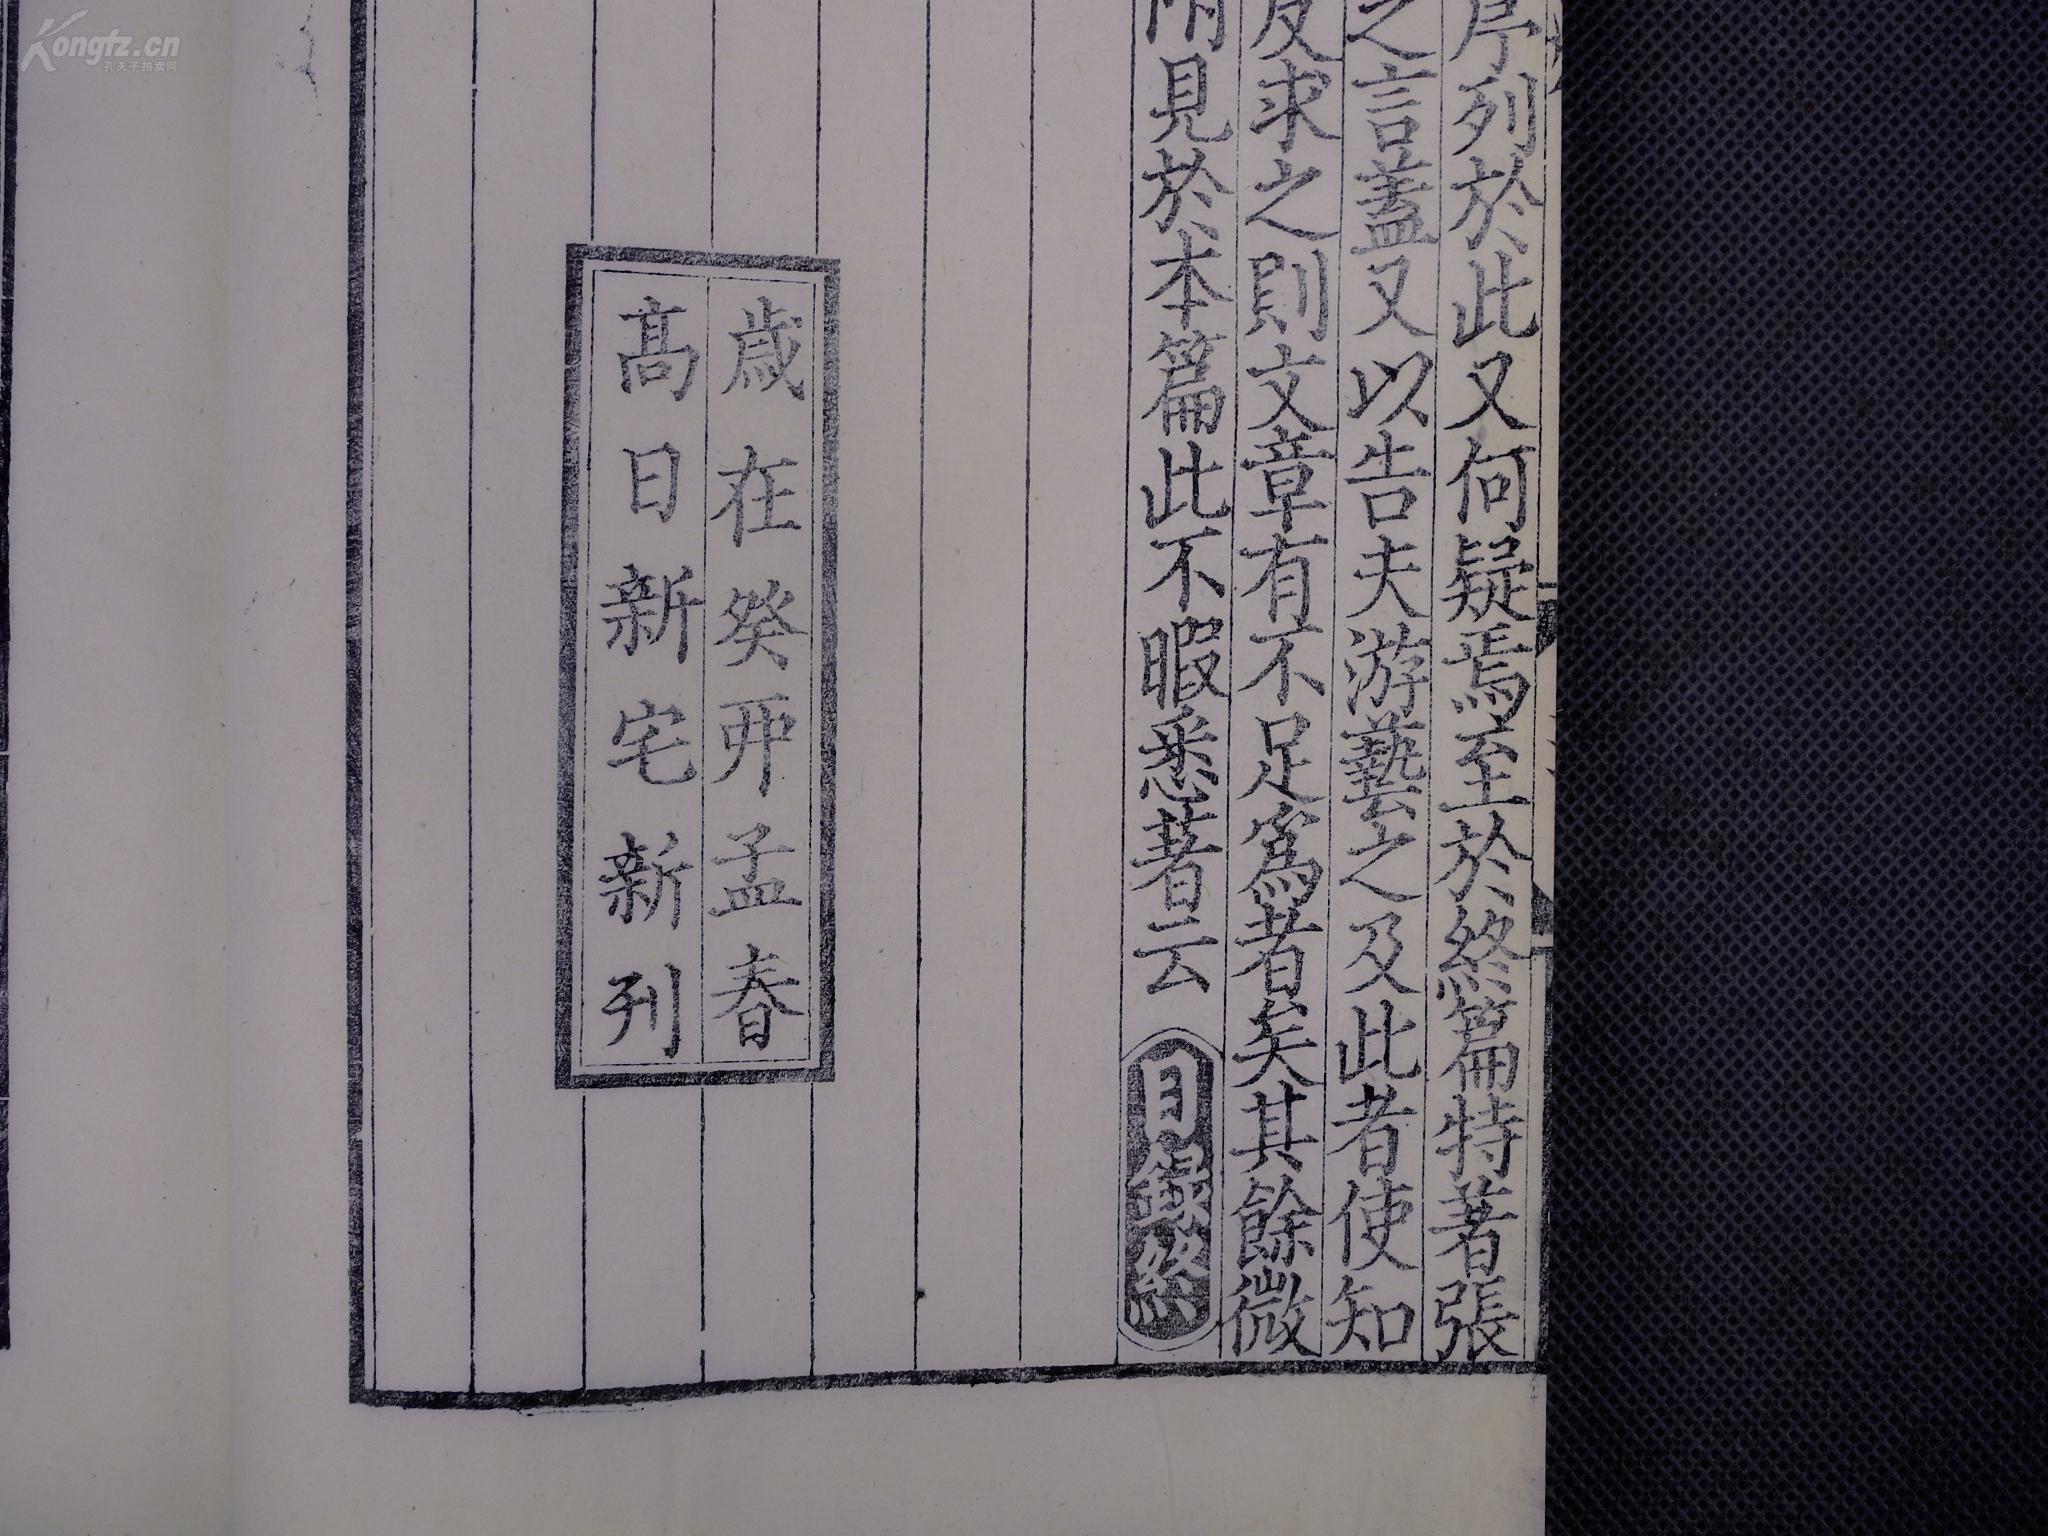 序列於此又何疑焉至於終篇特著張
之言蓋又以告夫游藝之及此者使知
反求之則文章有不足爲者矣其餘微
見於本篇此不暇悉著云
目錄終
歲在癸丣孟春
高日新宅新刋
Kongfz.cn
孔夫子拍卖网